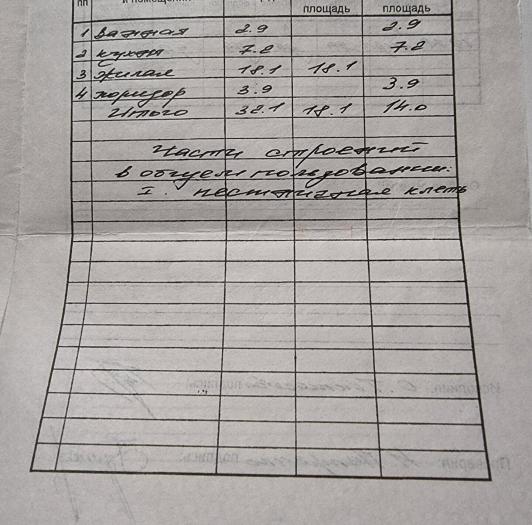 пп и помещений площадь площадь
1 ванная 2.9 2.9
2 кухня 7.2 7.2
3 жилая 18.1 18.1
4 коридор 3.9 3.9
Итого 32.1 18.1 14.0
Части строений
в общем пользовании:
I. лестничная клеть